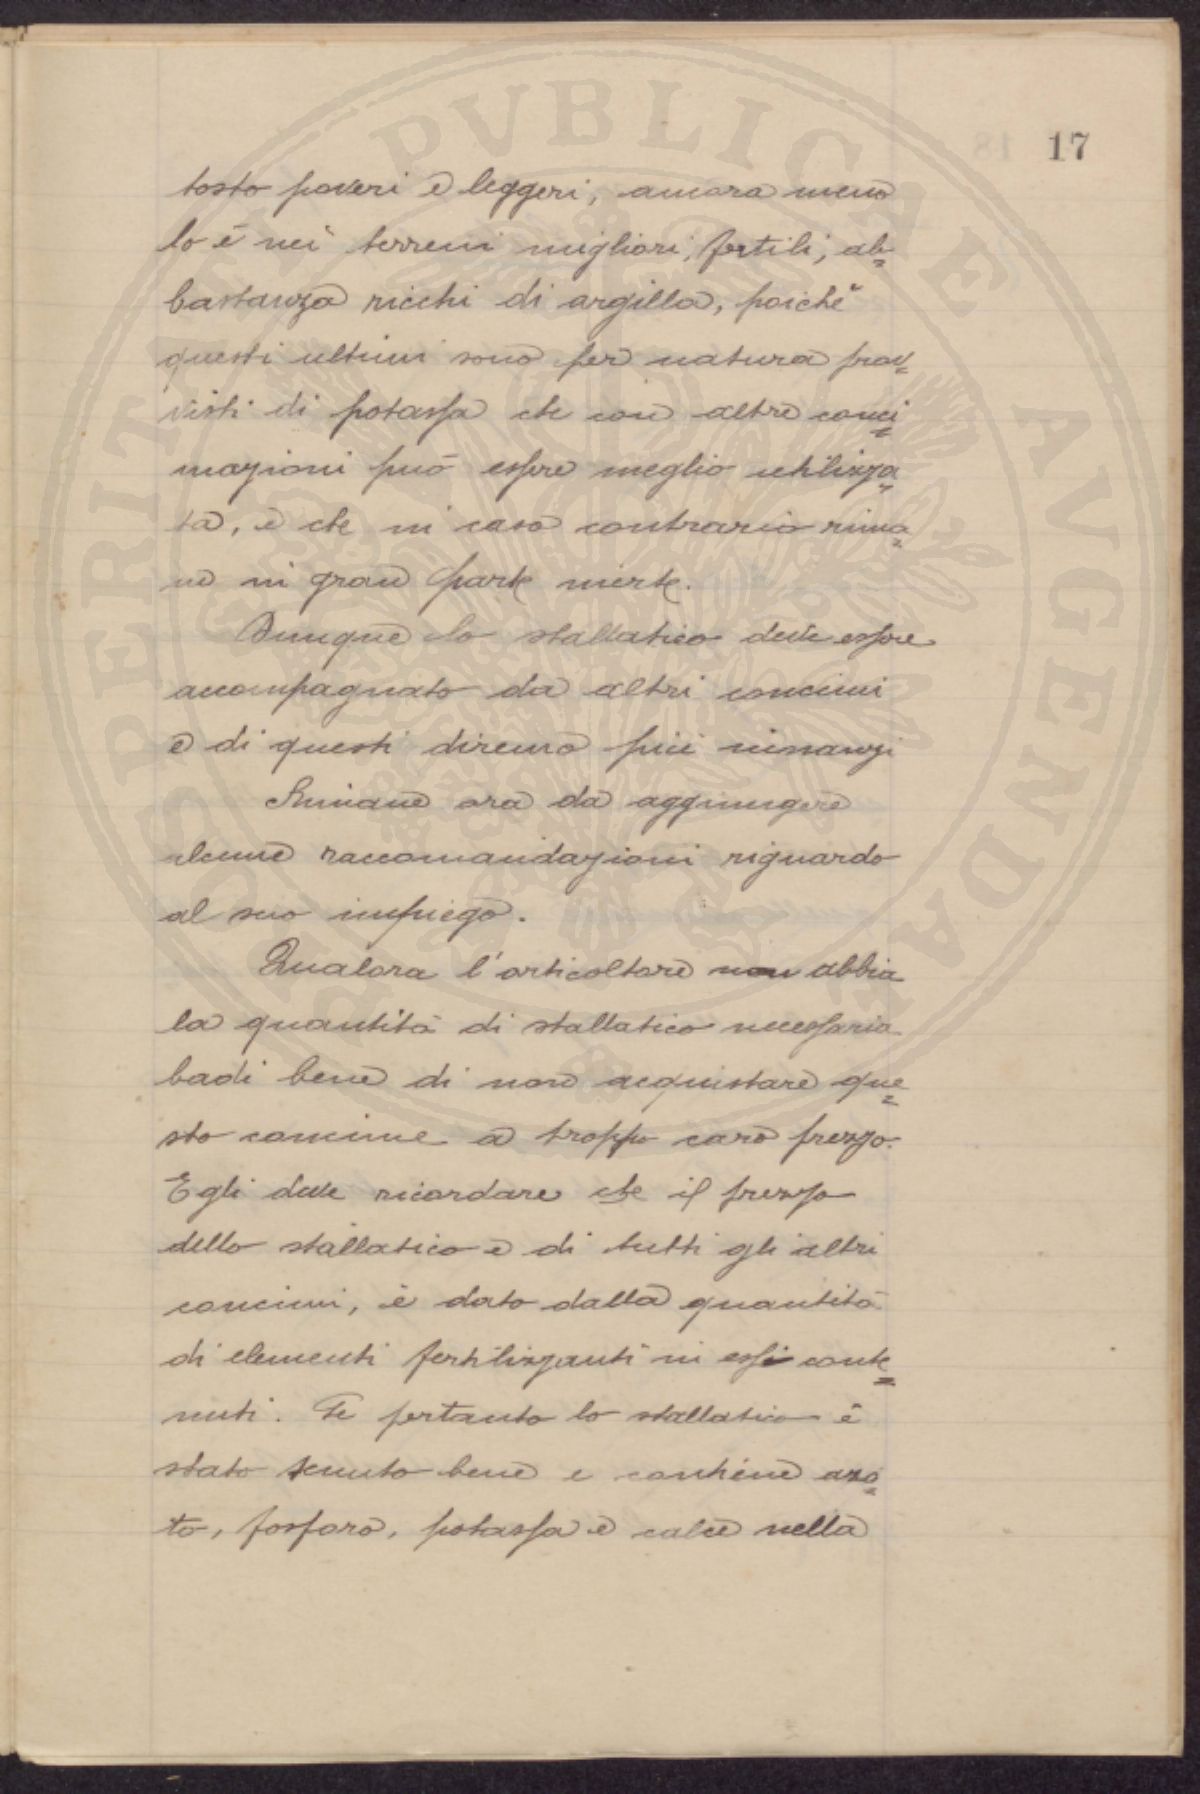 17
tosto poveri e leggeri, ancora meno
lo è nei terreni migliori, fertili, ab=
bastanza ricchi di argilla, poichè
questi ultimi sono per natura prov=
visti di potassa che con altre conci=
mazioni può essere meglio utilizza=
ta, e che in caso contrario rima=
ne in gran parte inerte.
Dunque lo stallatico deve essere
accompagnato da altri concimi
e di questi diremo più innanzi
Rimane ora da aggiungere
alcune raccomandazioni riguardo
al suo impiego.
Qualora l'orticoltore non abbia
la quantità di stallatico necessaria
badi bene di non acquistare que=
sto concime a troppo caro prezzo.
Egli deve ricordare che il prezzo
dello stallatico e di tutti gli altri
concimi, è dato dalla quantità
di elementi fertilizzanti in essi conte=
nuti. Se pertanto lo stallatico è
stato tenuto bene e contiene azo=
to, fosforo, potassa e calce nella
PROSPERITATI PVBLICAE AVGENDAE